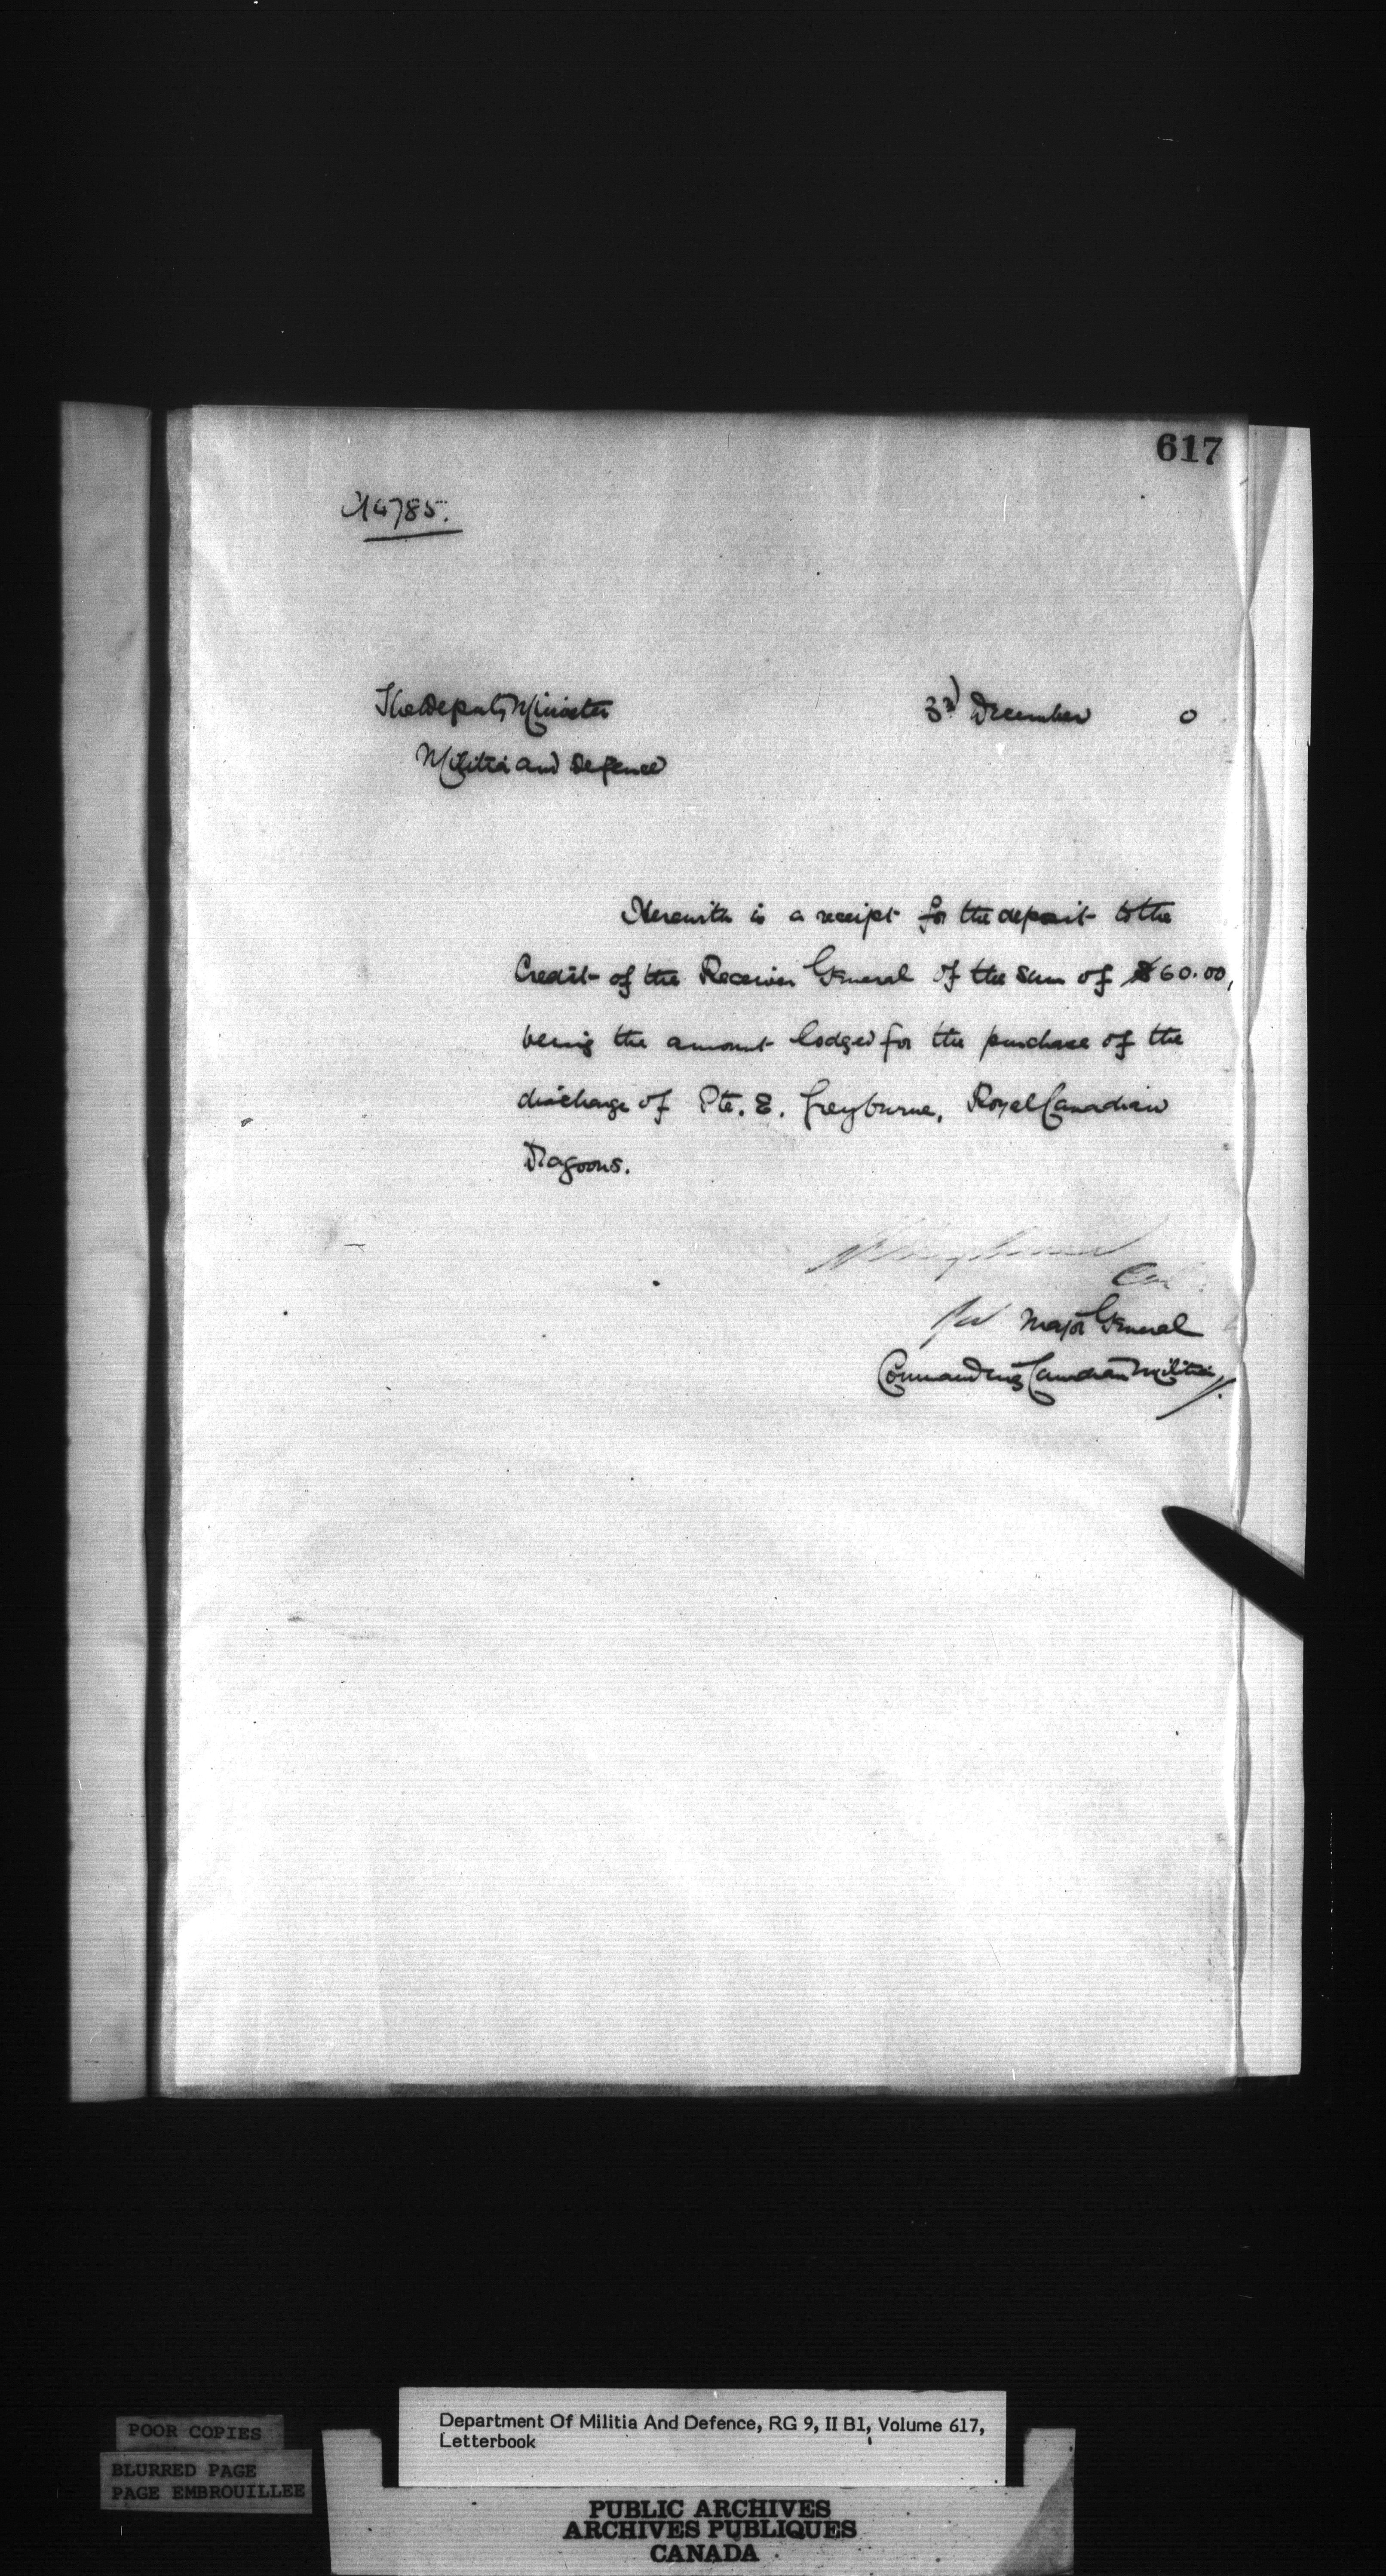 617
14785.
The Deputy Minister
3rd December 0
Militia and Defence
Herewith is a receipt for the deposit to the
Credit of the Receiver General of the sum of $60.00,
being the amount lodged for the purchase of the
discharge of Pte. E. Greyburne, Royal Canadian
Dragoons.
Col
for Major General
Commanding Canadian Militia.
POOR COPIES
BLURRED PAGE
PAGE EMBROUILLEE
Department Of Militia And Defence, RG 9, II B1, Volume 617,
Letterbook
PUBLIC ARCHIVES
ARCHIVES PUBLIQUES
CANADA